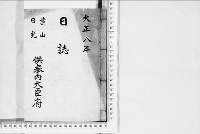 大正八年
日誌
葉山
日光
供奉内大臣府